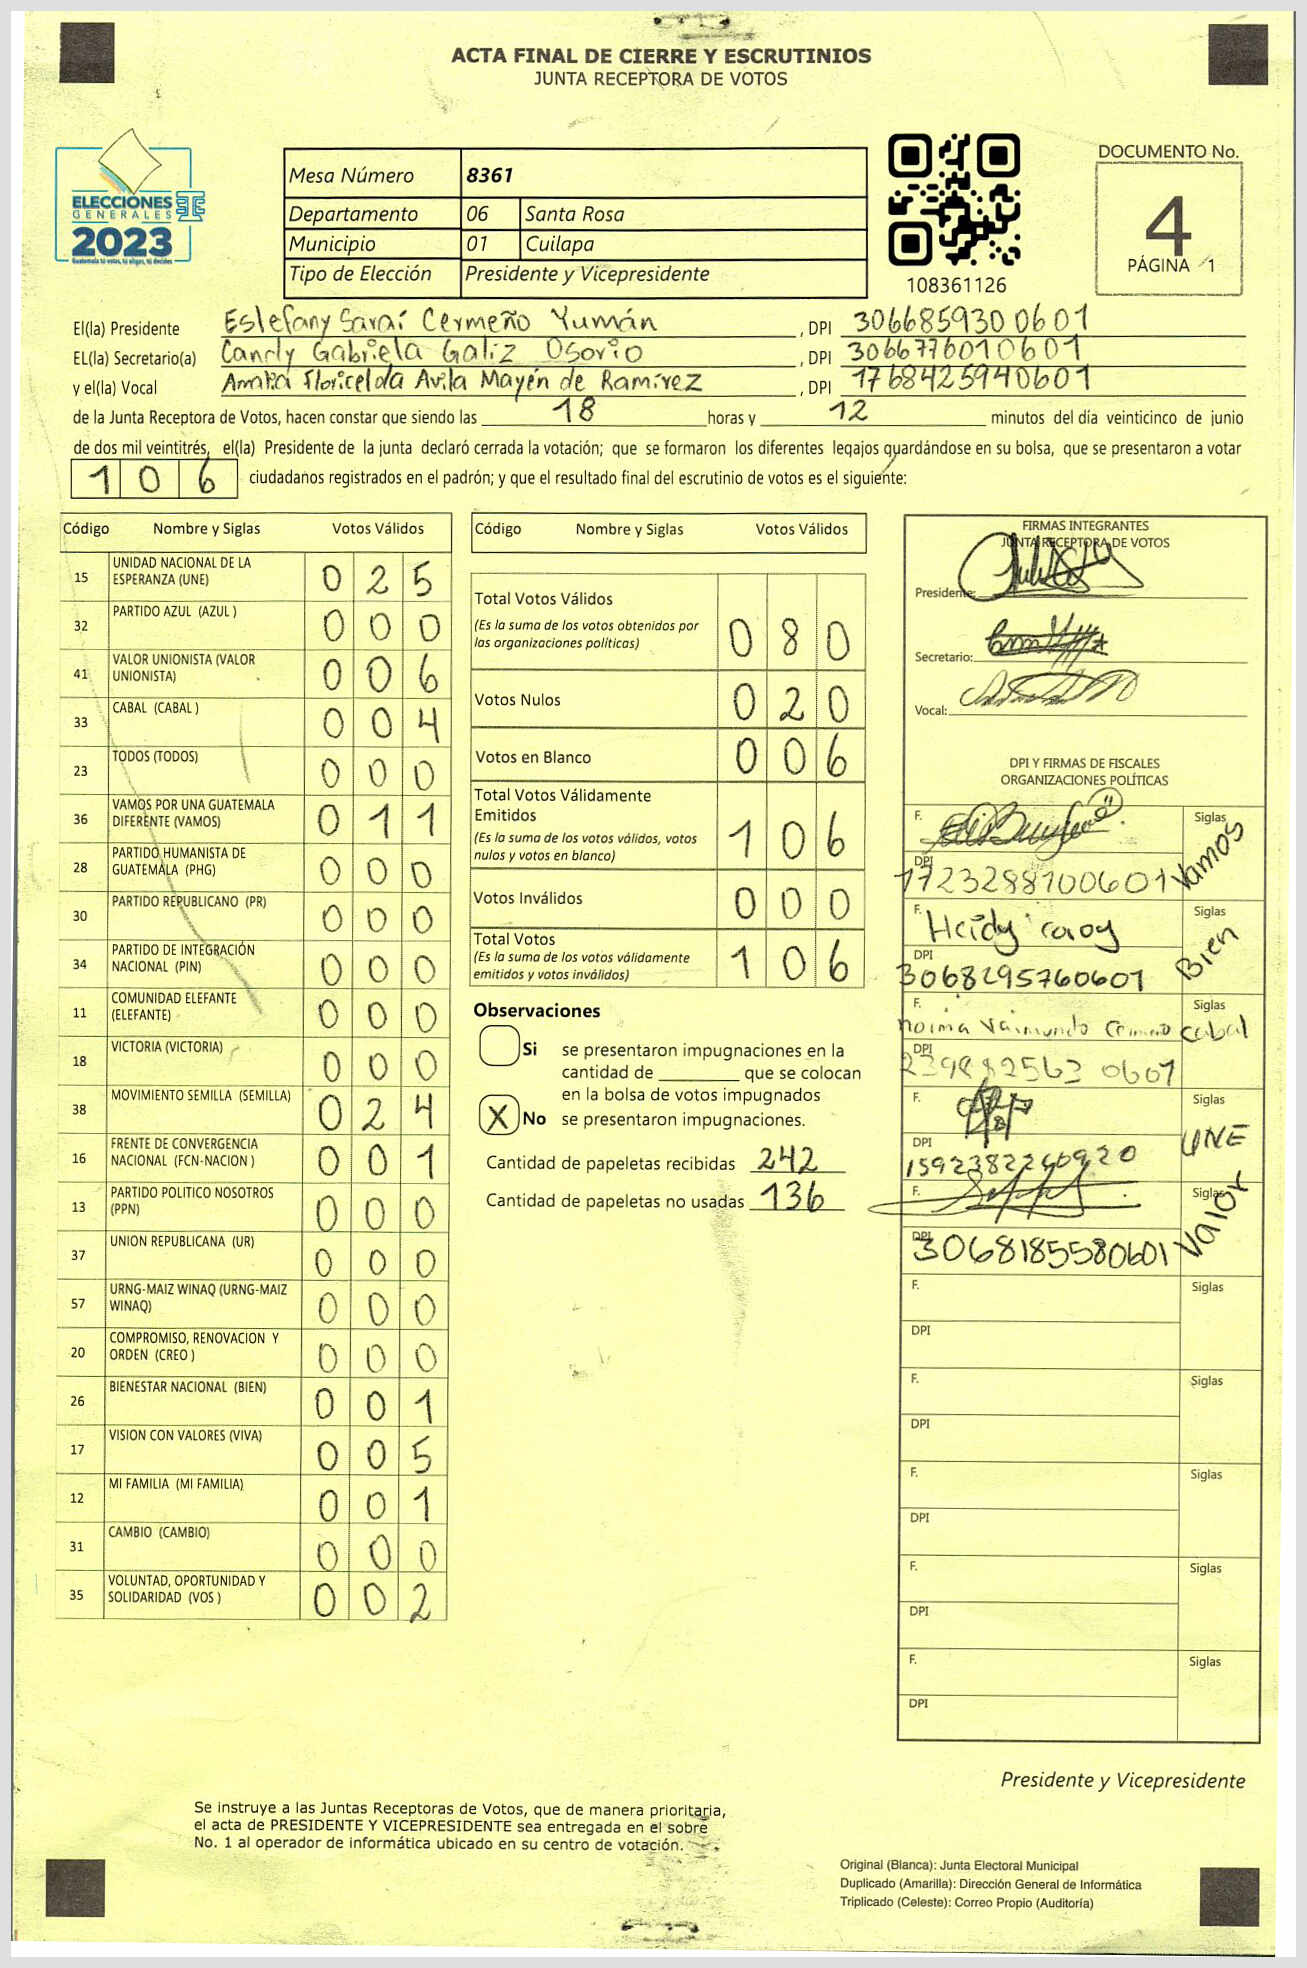 ACTA FINAL DE CIERRE Y ESCRUTINIOS
JUNTA RECEPTORA DE VOTOS
ELECCIONES
GENERALES
2023
Guatemala tú votas, tú eliges, tú decides
Mesa Número 8361
Departamento 06 Santa Rosa
Municipio 01 Cuilapa
Tipo de Elección Presidente y Vicepresidente
108361126
DOCUMENTO No.
4
PÁGINA 1
El(la) Presidente Estefany Saraí Cermeño Yumán, DPI 3066859300601
EL(la) Secretario(a) Candy Gabriela Galiz Osorio, DPI 3066776010601
y el(la) Vocal Amalia Floricelda Avila Mayén de Ramírez, DPI 1768425940601
de la Junta Receptora de Votos, hacen constar que siendo las 18 horas y 12 minutos del día veinticinco de junio
de dos mil veintitrés, el(la) Presidente de la junta declaró cerrada la votación; que se formaron los diferentes legajos guardándose en su bolsa, que se presentaron a votar
106 ciudadanos registrados en el padrón; y que el resultado final del escrutinio de votos es el siguiente:
Código Nombre y Siglas Votos Válidos
15 UNIDAD NACIONAL DE LA ESPERANZA (UNE) 025
32 PARTIDO AZUL (AZUL ) 000
41 VALOR UNIONISTA (VALOR UNIONISTA) 006
33 CABAL (CABAL ) 004
23 TODOS (TODOS) 000
36 VAMOS POR UNA GUATEMALA DIFERENTE (VAMOS) 011
28 PARTIDO HUMANISTA DE GUATEMALA (PHG) 000
30 PARTIDO REPUBLICANO (PR) 000
34 PARTIDO DE INTEGRACIÓN NACIONAL (PIN) 000
11 COMUNIDAD ELEFANTE (ELEFANTE) 000
18 VICTORIA (VICTORIA) 000
38 MOVIMIENTO SEMILLA (SEMILLA) 024
16 FRENTE DE CONVERGENCIA NACIONAL (FCN-NACION ) 001
13 PARTIDO POLITICO NOSOTROS (PPN) 000
37 UNION REPUBLICANA (UR) 000
57 URNG-MAIZ WINAQ (URNG-MAIZ WINAQ) 000
20 COMPROMISO, RENOVACION Y ORDEN (CREO ) 000
26 BIENESTAR NACIONAL (BIEN) 001
17 VISION CON VALORES (VIVA) 005
12 MI FAMILIA (MI FAMILIA) 001
31 CAMBIO (CAMBIO) 000
35 VOLUNTAD, OPORTUNIDAD Y SOLIDARIDAD (VOS ) 002
Código Nombre y Siglas Votos Válidos
Total Votos Válidos 080
(Es la suma de los votos obtenidos por
las organizaciones políticas)
Votos Nulos 020
Votos en Blanco 006
Total Votos Válidamente
Emitidos 106
(Es la suma de los votos válidos, votos
nulos y votos en blanco)
Votos Inválidos 000
Total Votos 106
(Es la suma de los votos válidamente
emitidos y votos inválidos)
Observaciones
Si se presentaron impugnaciones en la
cantidad de ________ que se colocan
en la bolsa de votos impugnados
X No se presentaron impugnaciones.
Cantidad de papeletas recibidas 242
Cantidad de papeletas no usadas 136
FIRMAS INTEGRANTES
JUNTA RECEPTORA DE VOTOS
Presidente:
Secretario:
Vocal:
DPI Y FIRMAS DE FISCALES
ORGANIZACIONES POLÍTICAS
F. Siglas Vamos
DPI 1723288100601
F. Heidy Siglas Bien
DPI 3068295760601
F. Norma Raimundo Siglas Cabal
DPI 2399825630601
F. Siglas UNE
DPI 1592382260920
F. Siglas Valor
DPI 3068185580601
F. Siglas
DPI
F. Siglas
DPI
F. Siglas
DPI
F. Siglas
DPI
F. Siglas
DPI
Presidente y Vicepresidente
Se instruye a las Juntas Receptoras de Votos, que de manera prioritaria,
el acta de PRESIDENTE Y VICEPRESIDENTE sea entregada en el sobre
No. 1 al operador de informática ubicado en su centro de votación.
Original (Blanca): Junta Electoral Municipal
Duplicado (Amarilla): Dirección General de Informática
Triplicado (Celeste): Correo Propio (Auditoría)